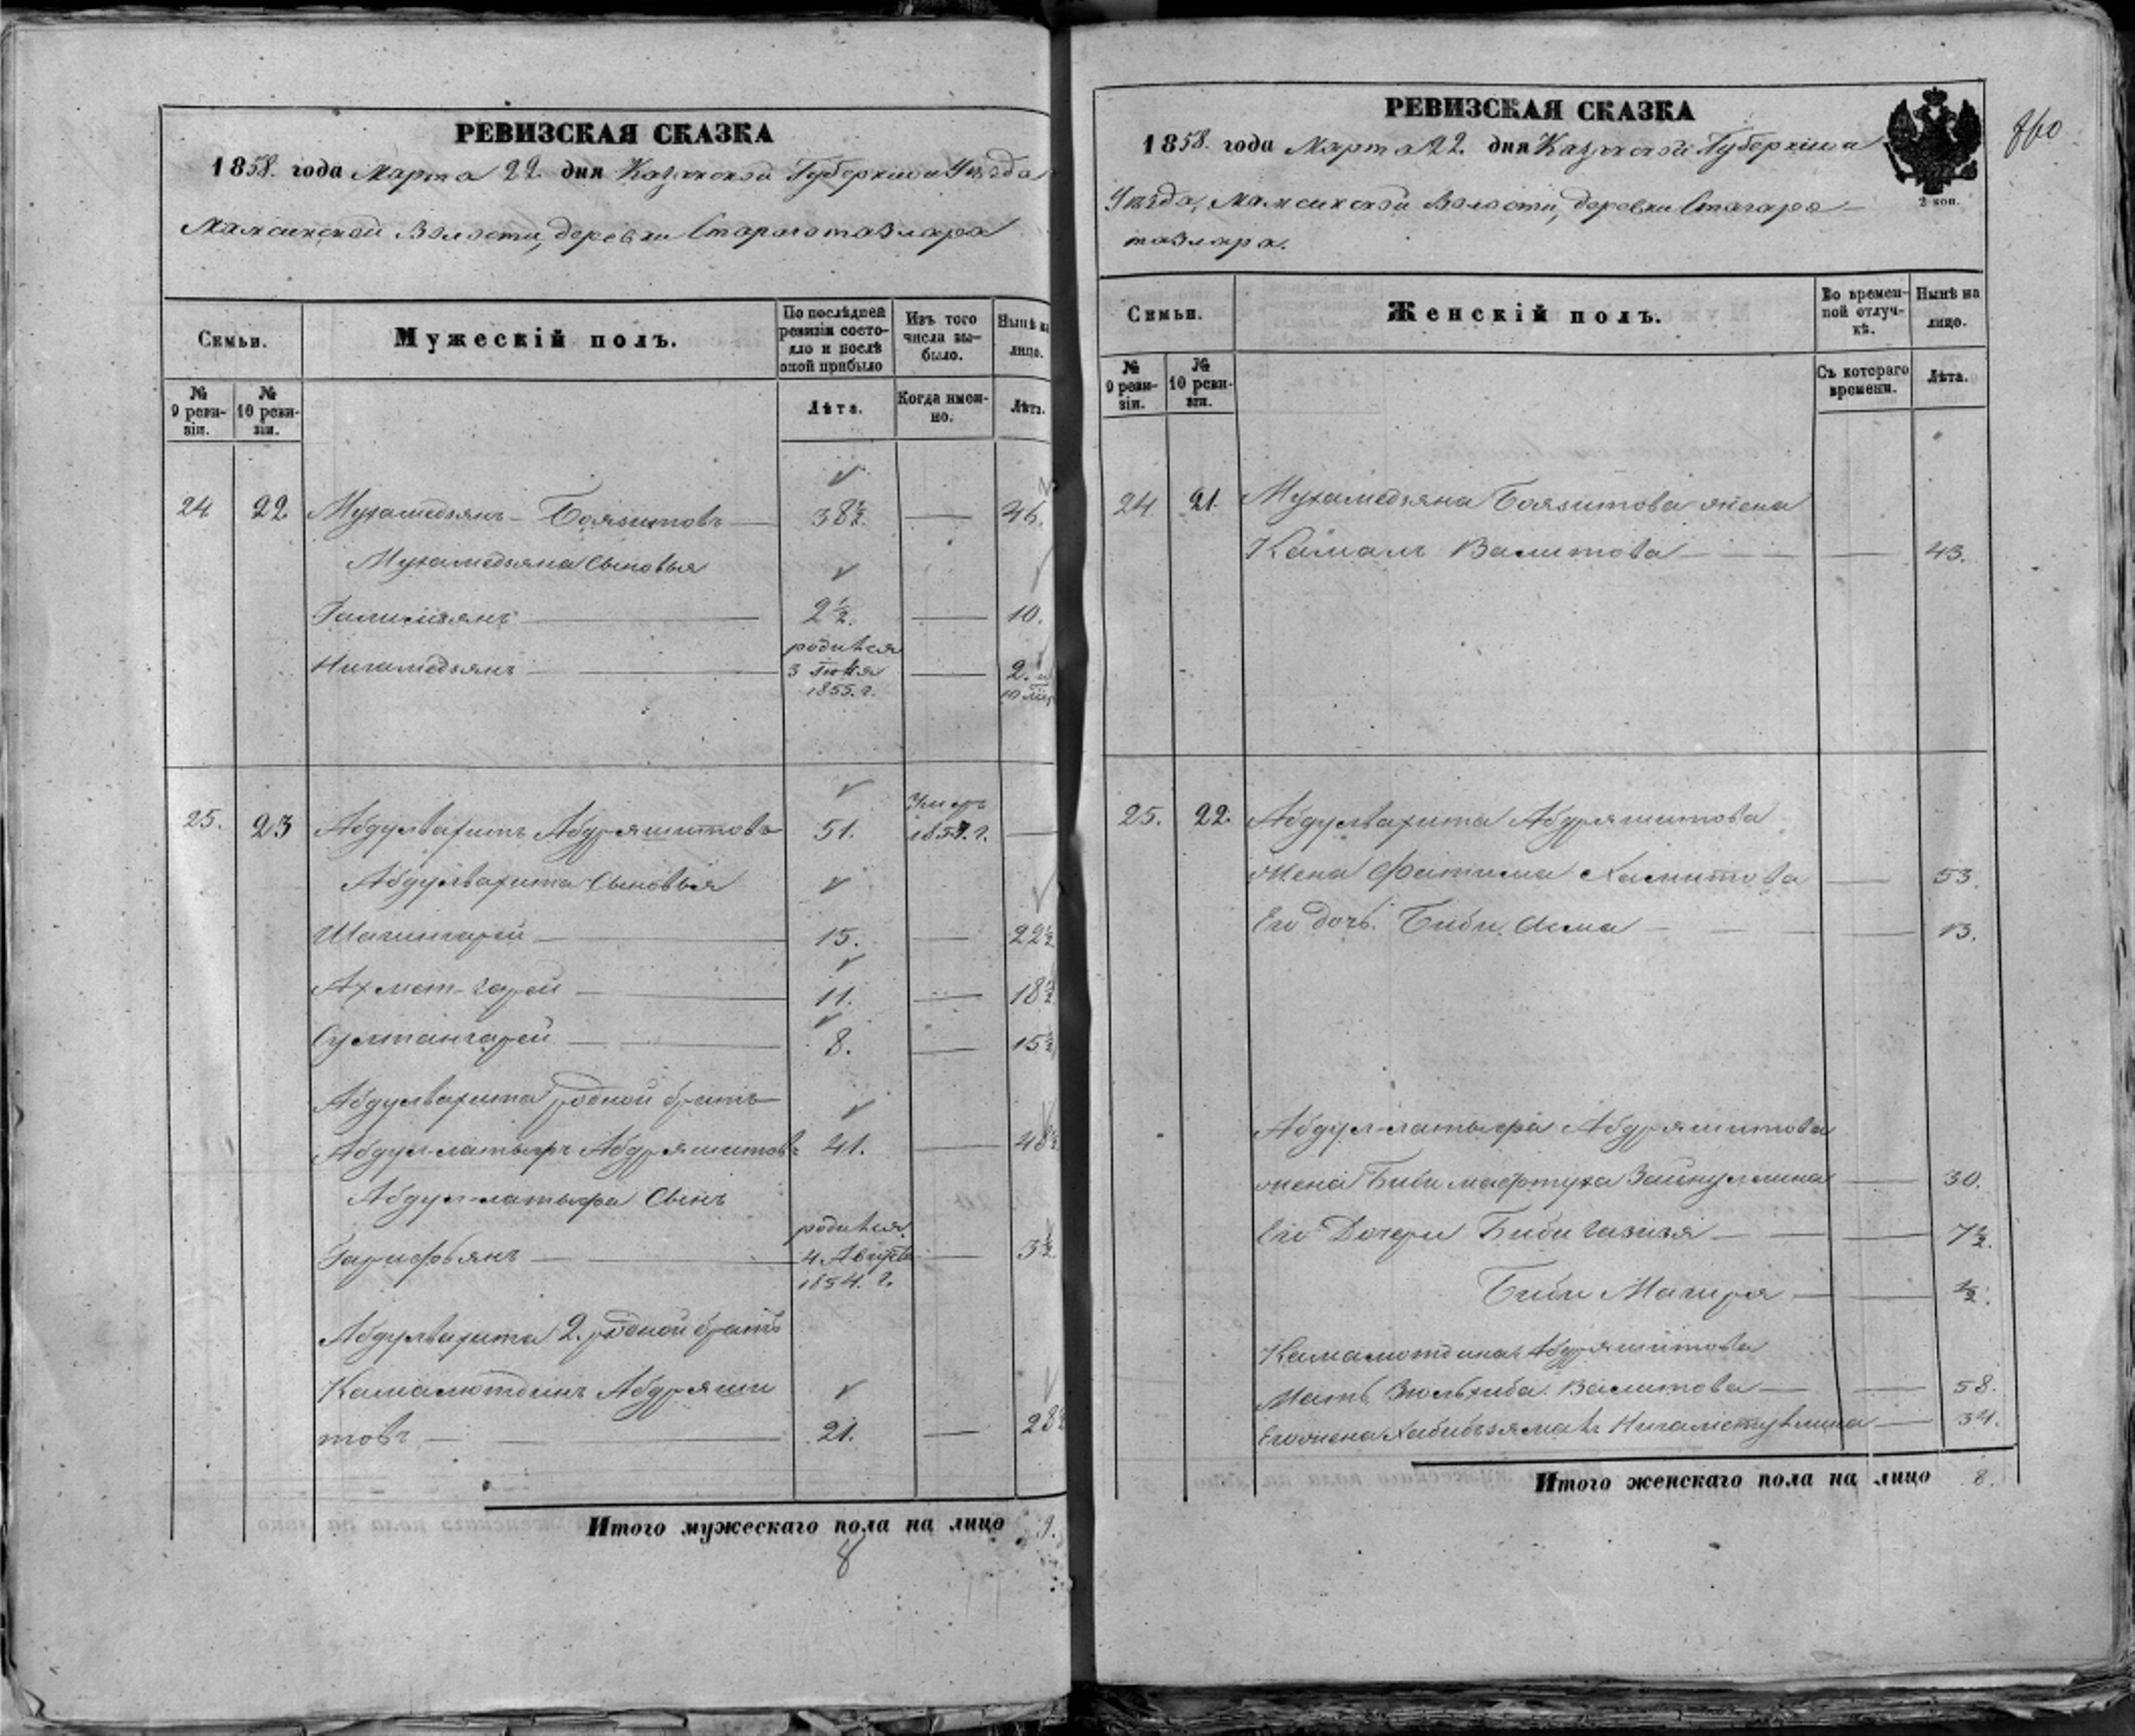 РЕВИЗСКАЯ СКАЗКА
1858. года Марта 22. дня Казанской Губернии и Уѣзда
Мамсинской Волости, деревни Стараго тазлара
Семьи.
Мужескій полъ.
По послѣдней ревизіи состояло и послѣ оной прибыло
Изъ того числа выбыло.
Нынѣ на лицо.
№ 9 ревизіи.
№ 10 ревизіи.
Лѣта.
Когда именно.
Лѣта.
24 22 Мухамедзянъ Боязитовъ 38½ 46.
Мухамедзяна Сыновья
Галимзянъ 2½. 10.
Нигамедзянъ родился 3 Іюня 1855. г. 2. и 10 мѣс
25. 23 Абдулвахитъ Абдряшитовъ 51. Умеръ 1857. г.
Абдулвахита Сыновья
Шагингарей 15. 22½
Ахмет-гарей 11. 18½
Султангарей 8. 15½
Абдулвахита родной братъ
Абдул-латыфъ Абдряшитовъ 41. 48½
Абдул-латыфа Сынъ
Гарифзянъ родился 4 Августа 1854. г. 3½
Абдулвахита 2. родной братъ
Камалютдинъ Абдряши
товъ 21. 28½
Итого мужескаго пола на лицо 9.
8
РЕВИЗСКАЯ СКАЗКА
1858. года Марта 22. дня Казанской Губерніи и
Уѣзда, Мамсинской Волости, деревни Стараго
тазлара.
2 коп.
860
Семьи.
Женскій полъ.
Во временной отлучкѣ.
Нынѣ на лицо.
№ 9 ревизіи.
№ 10 ревизіи.
Съ котораго времени.
Лѣта.
24 21. Мухамедзяна Боязитова жена
Камаль Валитова 43.
25. 22. Абдулвахита Абдряшитова
жена Фатима Хамитова 53.
Его дочь. Биби Асма 13.
Абдул-латыфа Абдряшитова
жена Биби мафтуха Зайнуллина 30.
Его Дочери Биби газизя 7½.
Биби Магиря ½.
Камалютдина Абдряшитова
Мать Зюльхиба Валитова 58.
Его жена Хабибзямалъ Нигаметуллина 34.
Итого женскаго пола на лицо 8.